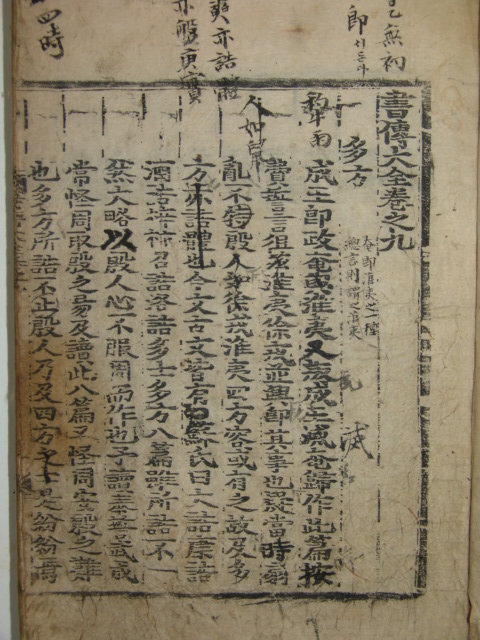 書傳大全卷之九
多方
奄即淮夷之一種
總言則謂之淮夷
滅
成王即政奄與淮夷又叛成王滅奄歸作此篇按
費誓言徂茲淮夷徐戎並興即其事也疑當時扇
亂不特殷人如徐戎淮夷四方容或有之故及多
方亦誥體也今文古文皆有○蘇氏曰大誥康誥
酒誥梓材召誥洛誥多士多方八篇雖所誥不一
然大略以殷人心不服周而作也予讀泰誓武成
常怪周取殷之易及讀此八篇又怪周安殷之難
也多方所誥不止殷人乃及四方之士是紛紛焉
無初
即
爽亦誥
亦盤庚
四時